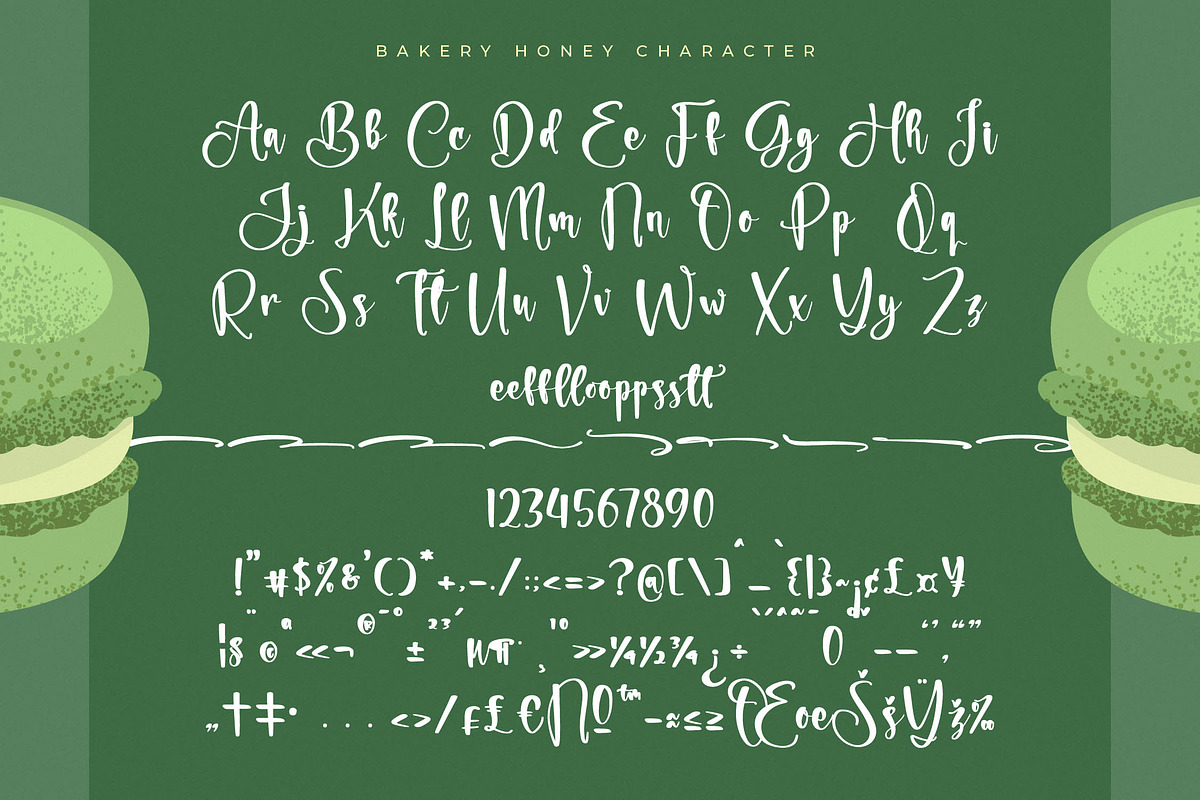 BAKERY HONEY CHARACTER
Aa Bb Cc Dd Ee Ff Gg Hh Ii
Jj Kk Ll Mm Nn Oo Pp Qq
Rr Ss Tt Uu Vv Ww Xx Yy Zz
eeffllooppsstt
1234567890
!"#$%&'()*+,-./:;<=>?@[\]^_`{|}~¡¢£¤¥
¦§¨©ª«¬®¯°±²³´µ¶·¸¹º»¼½¾¿÷ 0 –— ‘’‚“”
„†‡•...‹›⁄₣₤€№™−≈≤≥ŒœŠšŸž‰